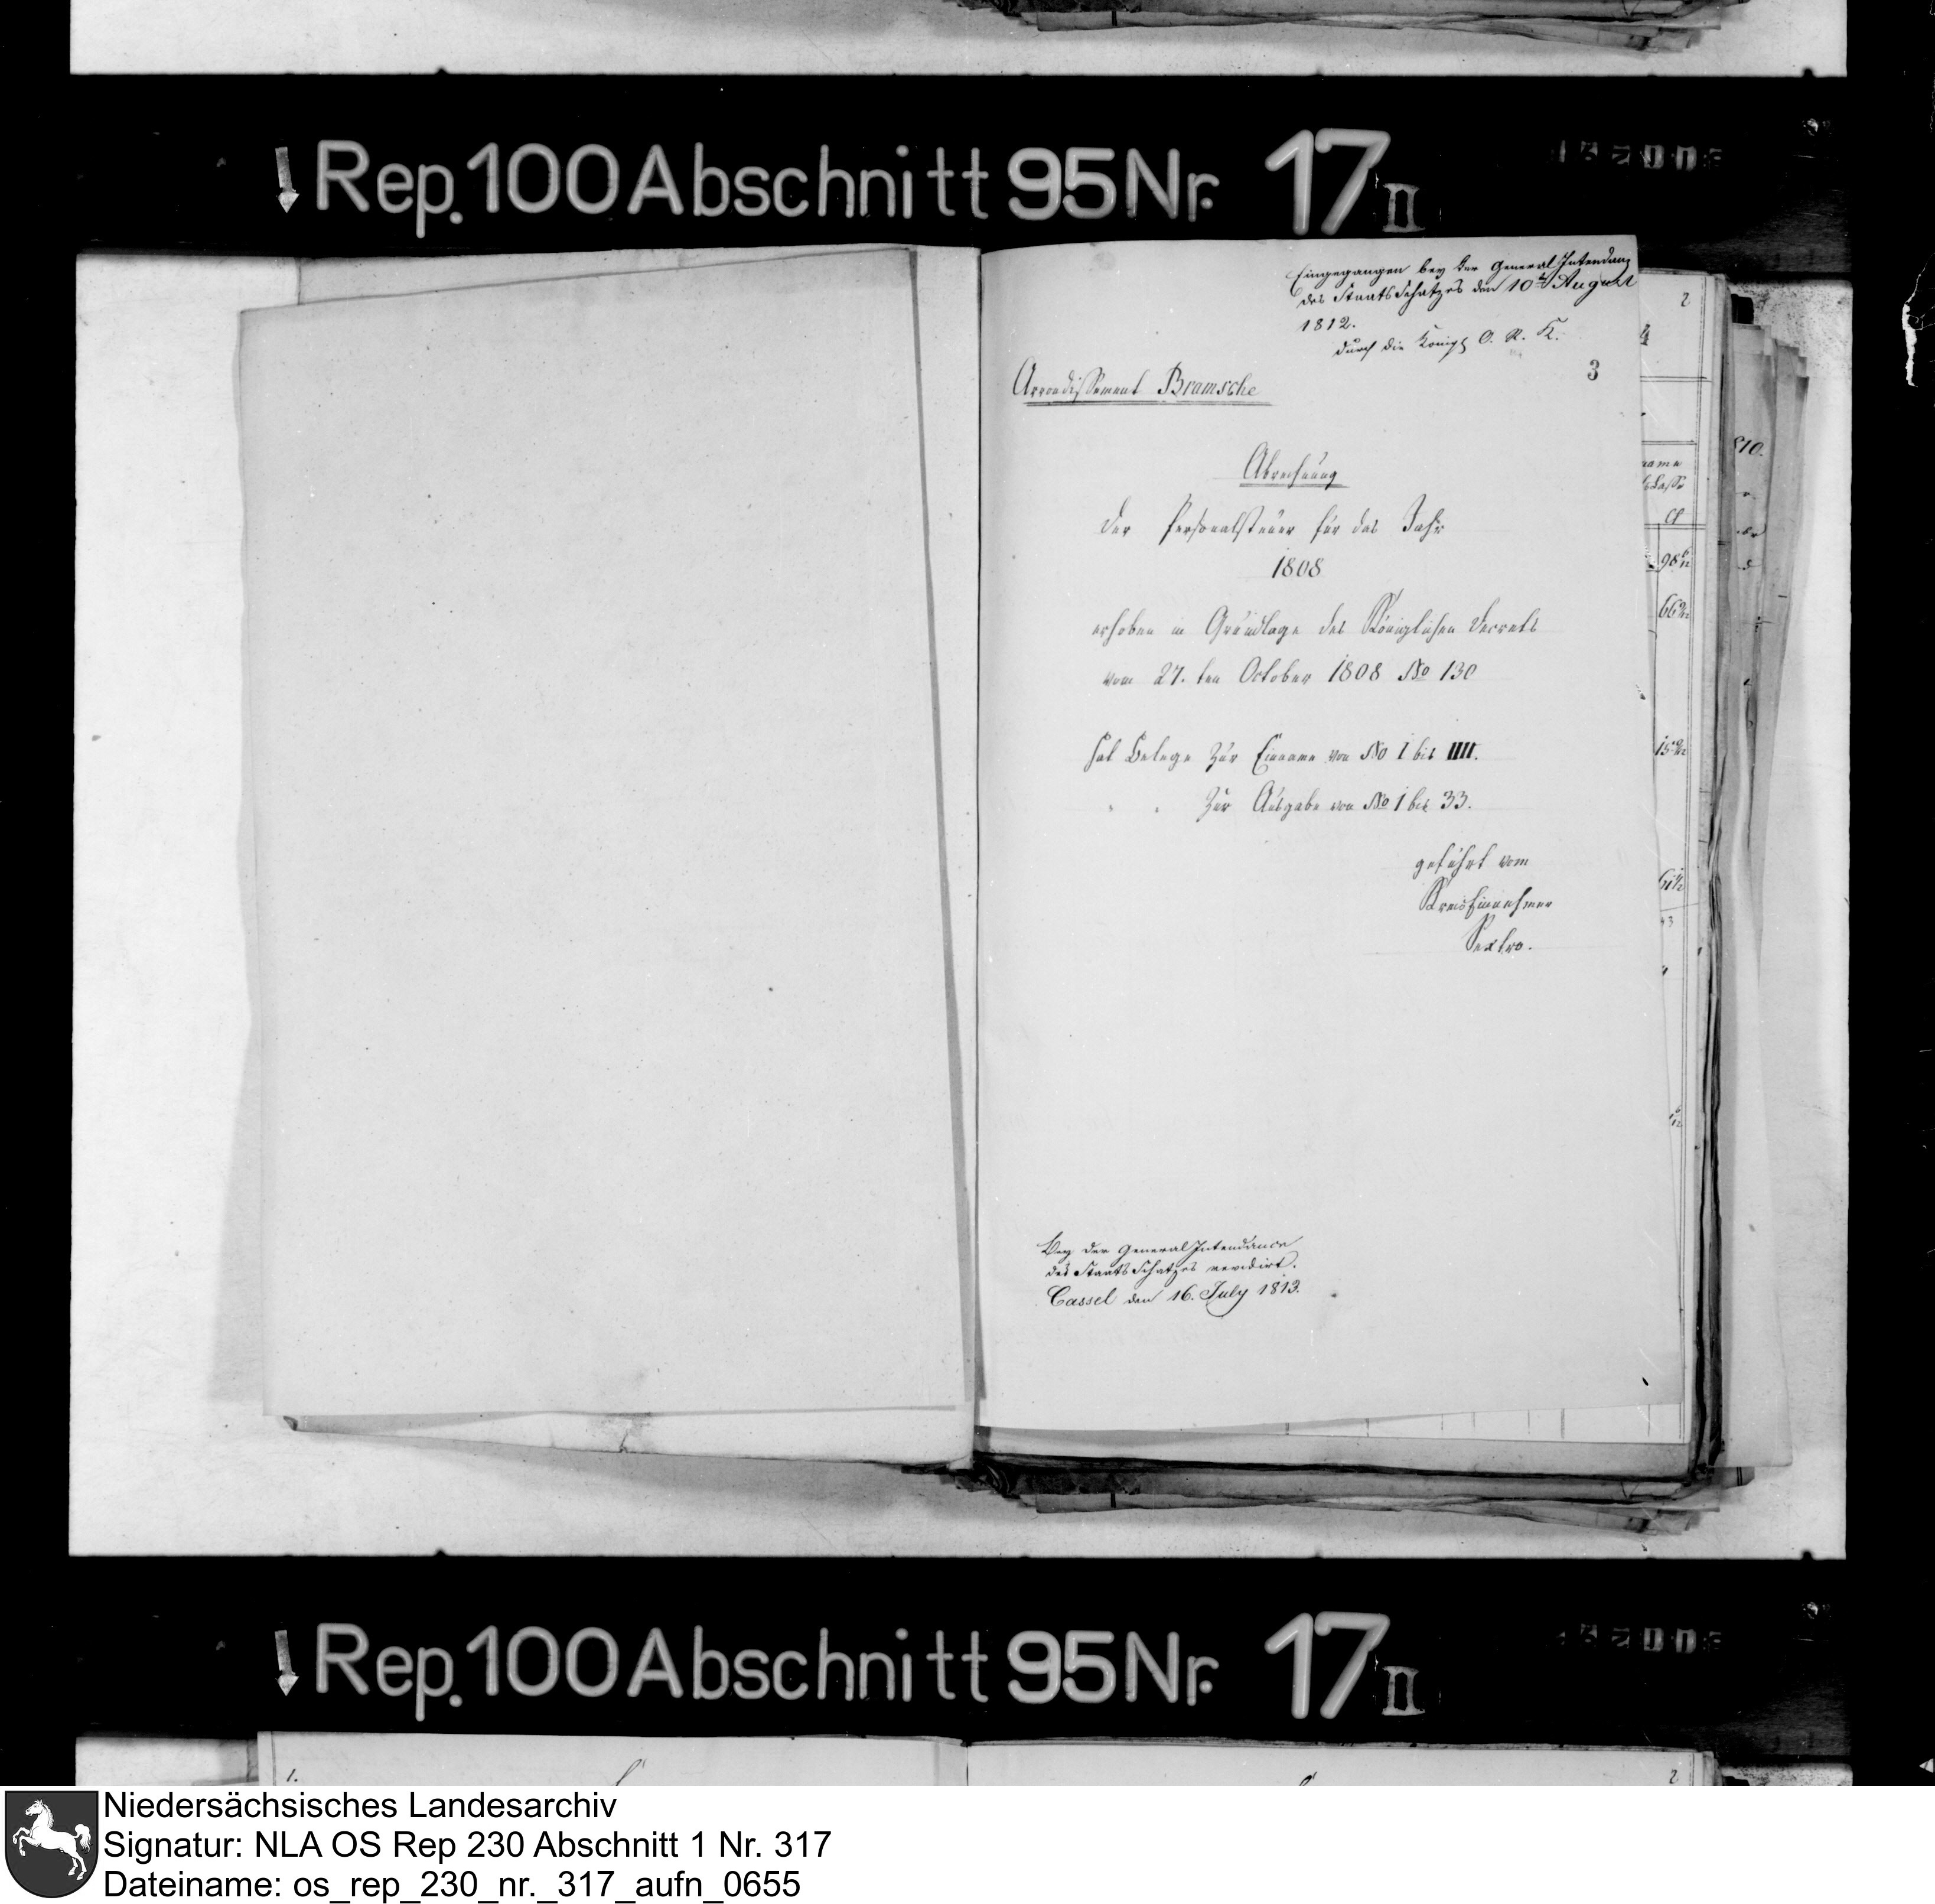 Rep. 100 Abschnitt 95 Nr. 17 II
Eingegangen bey der General Intendanz
des Staats Schatzes den 10t August
1812.
durch die Königl O. R. K.
3
Arrondissement Bramsche
Abrechnung
der Personalsteuer für das Jahr
1808
erhoben in Grundlage des Königlichen Decrets
vom 27. ten October 1808 No 130
hat Belege zur Einname von No I bis IIII.
" " zur Ausgabe von No 1 bis 33.
geführt vom
KreisEinnehmer
Sextro.
Bey der General Intendance
des Staats Schatzes revidirt.
Cassel den 16. July 1813.
2
810.
98 6/12
Rep. 100 Abschnitt 95 Nr. 17 II
1.
2
Niedersächsisches Landesarchiv
Signatur: NLA OS Rep 230 Abschnitt 1 Nr. 317
Dateiname: os_rep_230_nr._317_aufn_0655